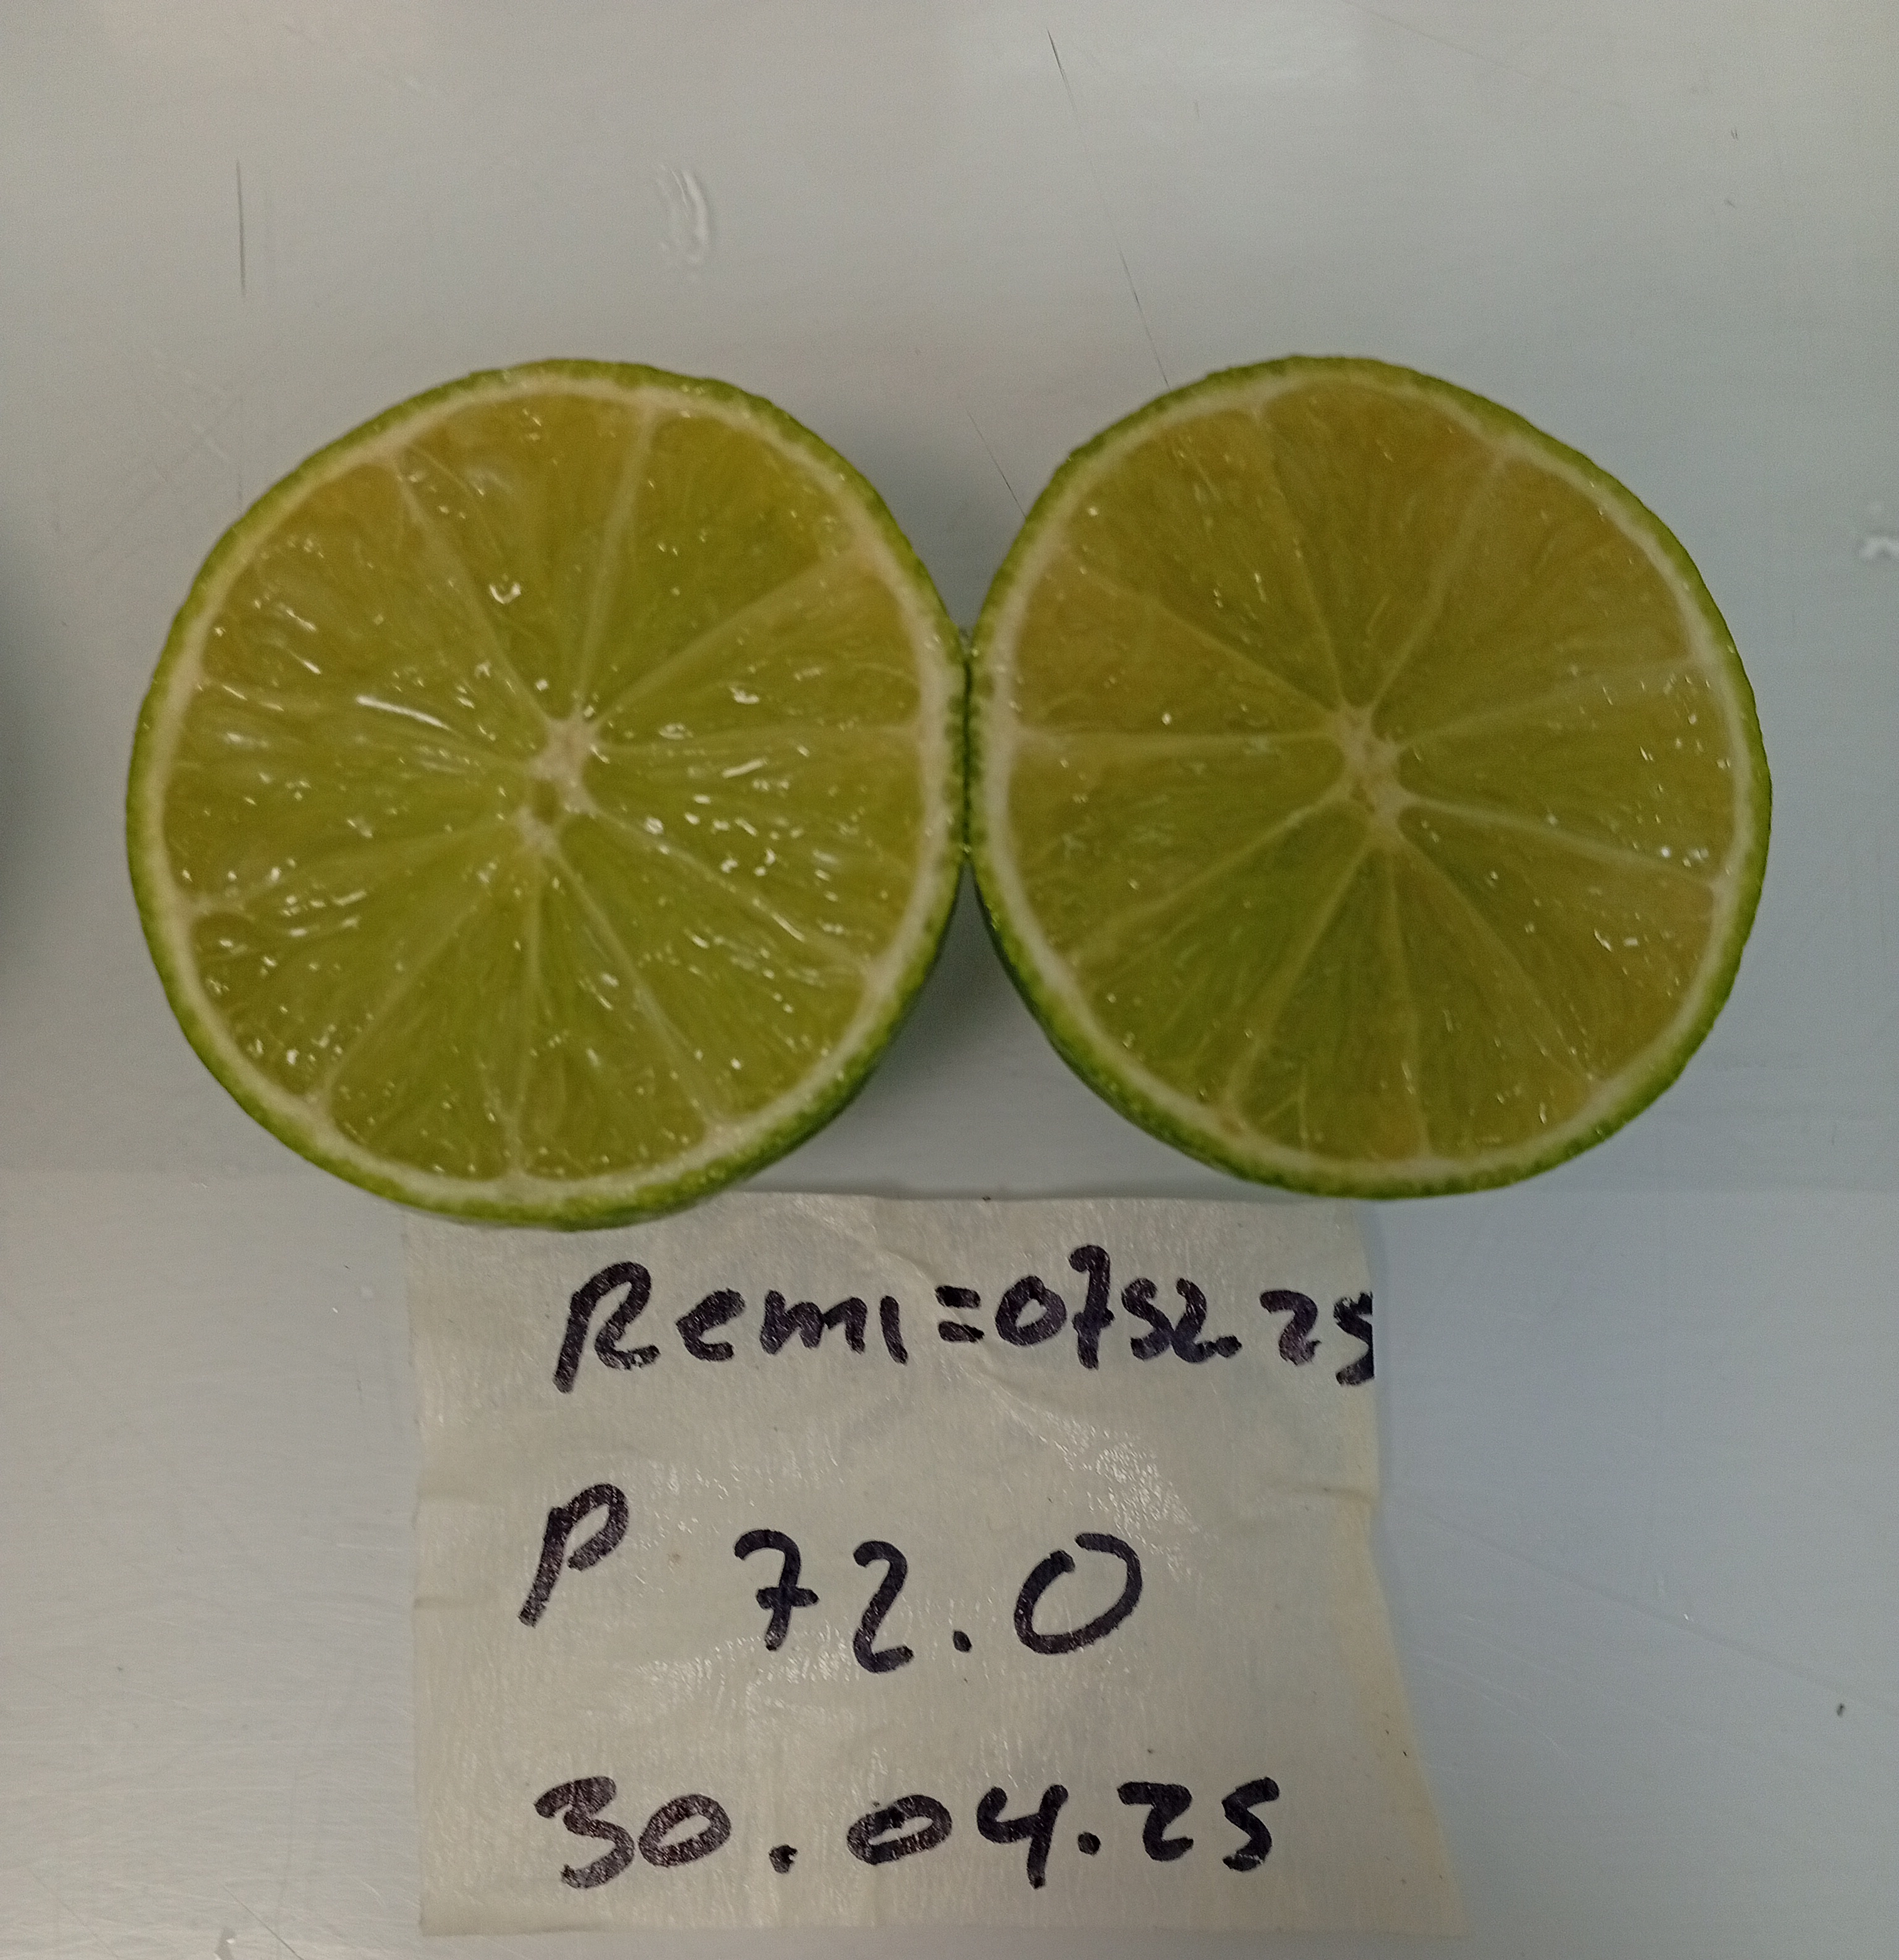 Remi=0752.25
P 72.0
30.04.25